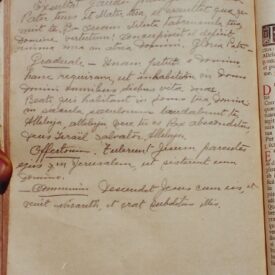 Exsultet gaudio
Pater tuus et Mater tua, et exsultet quae ge-
nuit te. Ps. Quam dilecta tabernacula tua
Domine virtutum: Concupiscit et deficit
anima mea in atria Domini. Gloria Patri
Graduale — Unam petii a Domino
hanc requiram, ut inhabitem in domo
Domini omnibus diebus vitae meae.
Beati qui habitant in domo tua, Domine
in saecula saeculorum laudabunt te.
Alleluja, alleluja vere tu es Rex absconditus,
Deus Israel Salvator, Alleluja.
Offertorium. Tulerunt Jesum parentes
ejus in Jerusalem, ut sisterent eum
Domino.
— Communio Descendit Jesus cum eis, et
venit Nazareth, et erat subditus illis.